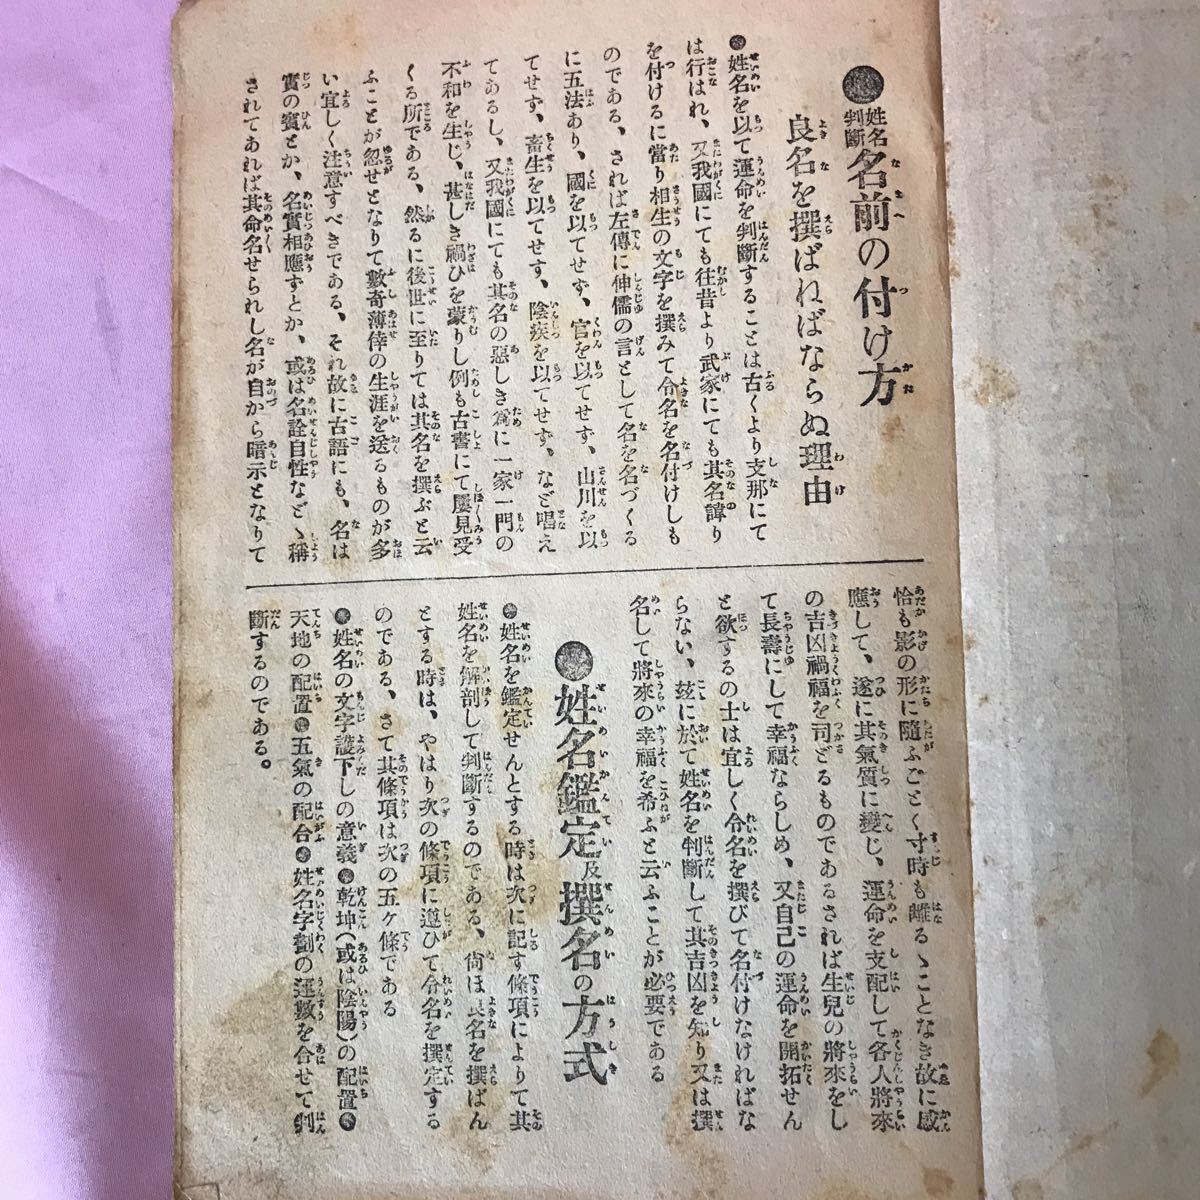 ●姓名判斷名前の付け方
良名を撰ばねばならぬ理由
●姓名を以て運命を判斷することは古くより支那にて
は行はれ、又我國にても往昔より武家にても其名諱り
を付けるに當り相生の文字を撰みて令名を名付けしも
のである、されば左傳に伸儒の言として名を名づくる
に五法あり、國を以てせず、官を以てせず、山川を以
てせず、畜生を以てせす、陰疾を以てせず、など唱え
てあるし、又我國にても其名の惡しき爲に一家一門の
不和を生じ、甚しき禍ひを蒙りし例も古書にて屢見受
くる所である、然るに後世に至りては其名を撰ぶと云
ふことが忽せとなりて數奇薄倖の生涯を送るものが多
い宜しく注意すべきである、それ故に古語にも、名は
實の賓とか、名實相應ずとか、或は名詮自性などゝ稱
されてあれば其命名せられし名が自から暗示となりて
恰も影の形に隨ふごとく寸時も離るゝことなき故に感
應して、遂に其氣質に變じ、運命を支配して各人將來
の吉凶禍福を司どるものであるされば生兒の將來をし
て長壽にして幸福ならしめ、又自己の運命を開拓せん
と欲するの士は宜しく令名を撰びて名付けなければな
らない、玆に於て姓名を判斷して其吉凶を知り又は撰
名して將來の幸福を希ふと云ふことが必要である
●姓名鑑定及撰名の方式
●姓名を鑑定せんとする時は次に記す條項によりて其
姓名を解剖して判斷するのである、尙ほ良名を撰ばん
とする時は、やはり次の條項に遵ひて令名を撰定する
のである、さて其條項は次の五ケ條である
●姓名の文字讀下しの意義●乾坤(或は陰陽)の配置●
天地の配置●五氣の配合●姓名字劃の運數を合せて判
斷するのである。